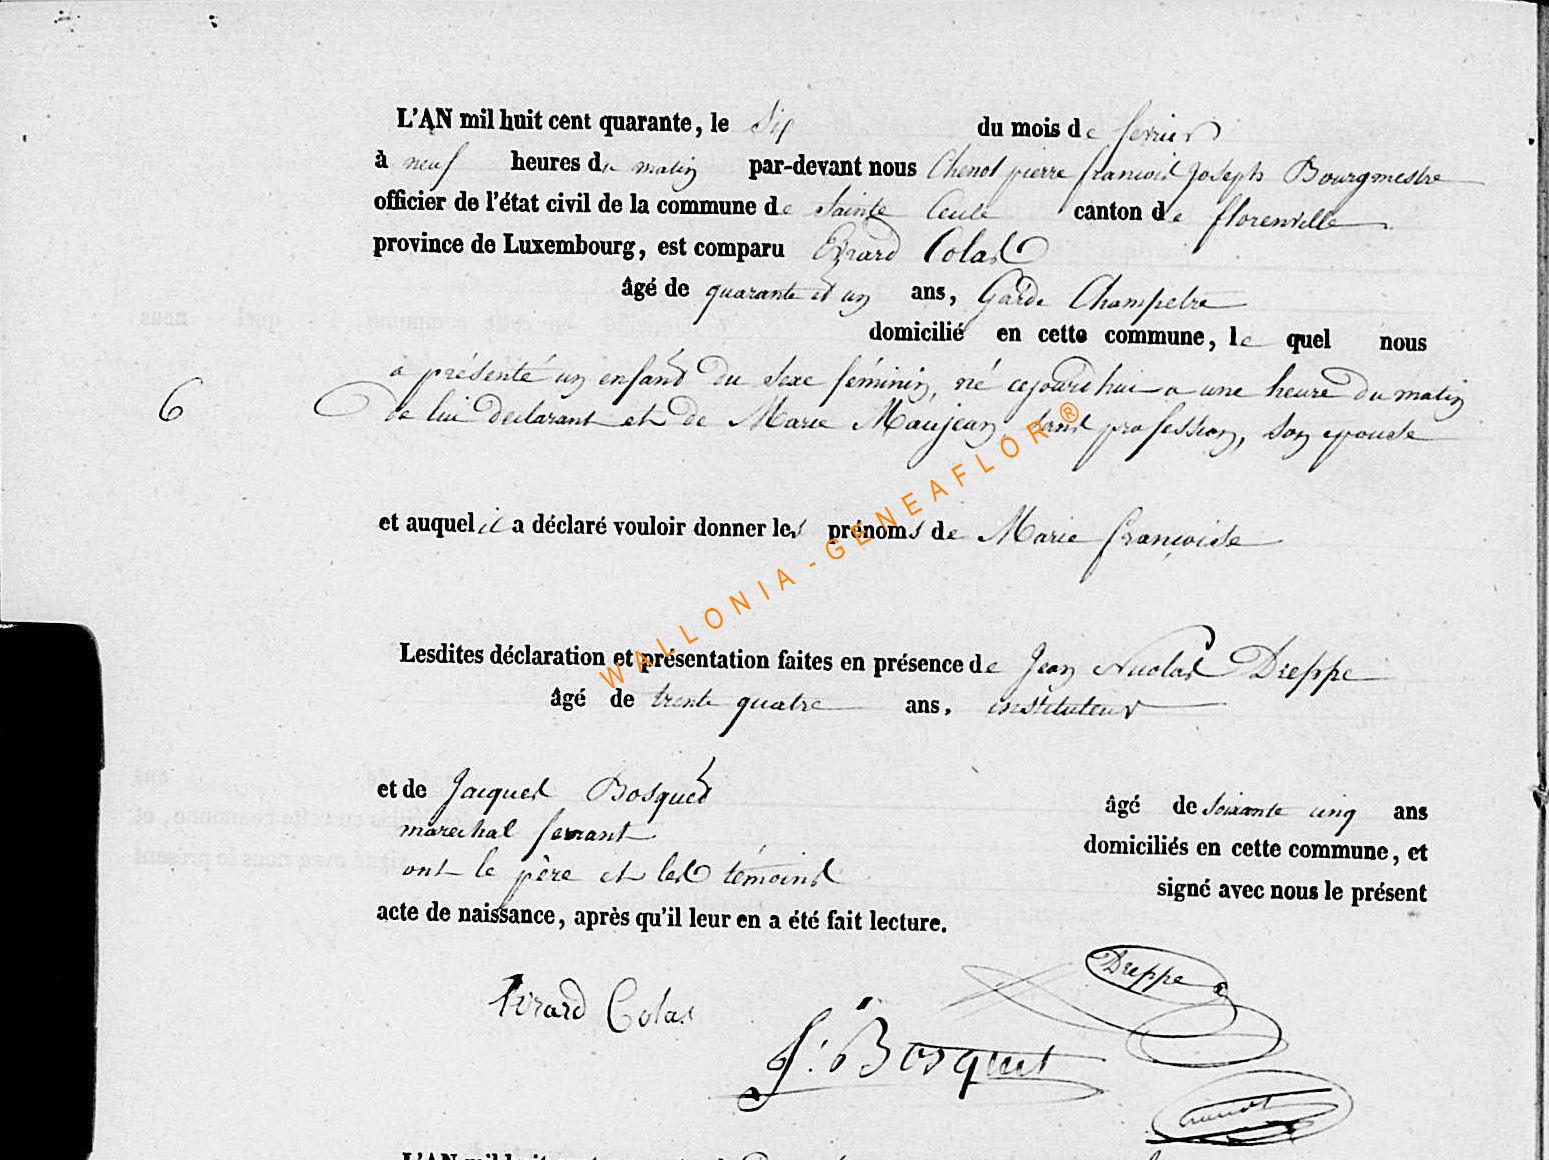 L'AN mil huit cent quarante, le six du mois de fevrier
à neuf heures du matin par-devant nous Chenot pierre francois joseph Bourgmestre
officier de l'état civil de la commune de Sainte Cecile canton de florenville
province de Luxembourg, est comparu Evrard Colas
âgé de quarante et un ans, Garde Champetre
domicilié en cette commune, le quel nous
a présenté un enfant du sexe féminin, né cejourdhui a une heure du matin
6 de lui declarant et de Marie Maujean, sans profession, son epouse
et auquel il a déclaré vouloir donner les prénoms de Marie françoise
Lesdites déclaration et présentation faites en présence de Jean Nicolas Dreppe
âgé de trente quatre ans, instituteur
et de Jacques Bosquet âgé de Soixante cinq ans
marechal ferrant domiciliés en cette commune, et
ont le père et les témoins signé avec nous le présent
acte de naissance, après qu'il leur en a été fait lecture.
Dreppe
Evrard Colas
J. Bosquet
WALLONIA - GENEAFLOR ®